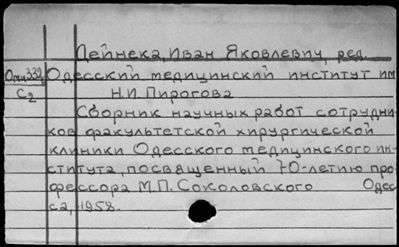 Дейнека, Иван Яковлевич, ред.
Одесский медицинский институт им
С2 Н.И Пирогова
Сборник научных работ сотрудни-
ков факультетской хирургической
клиники Одесского медицинского ин-
ститута, посвященный 70-летию про-
фессора М.П. Соколовского Одес
са, 1958.